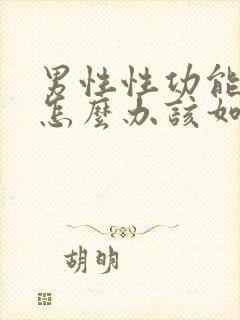 男性性功能
怎麼办該如
胡明